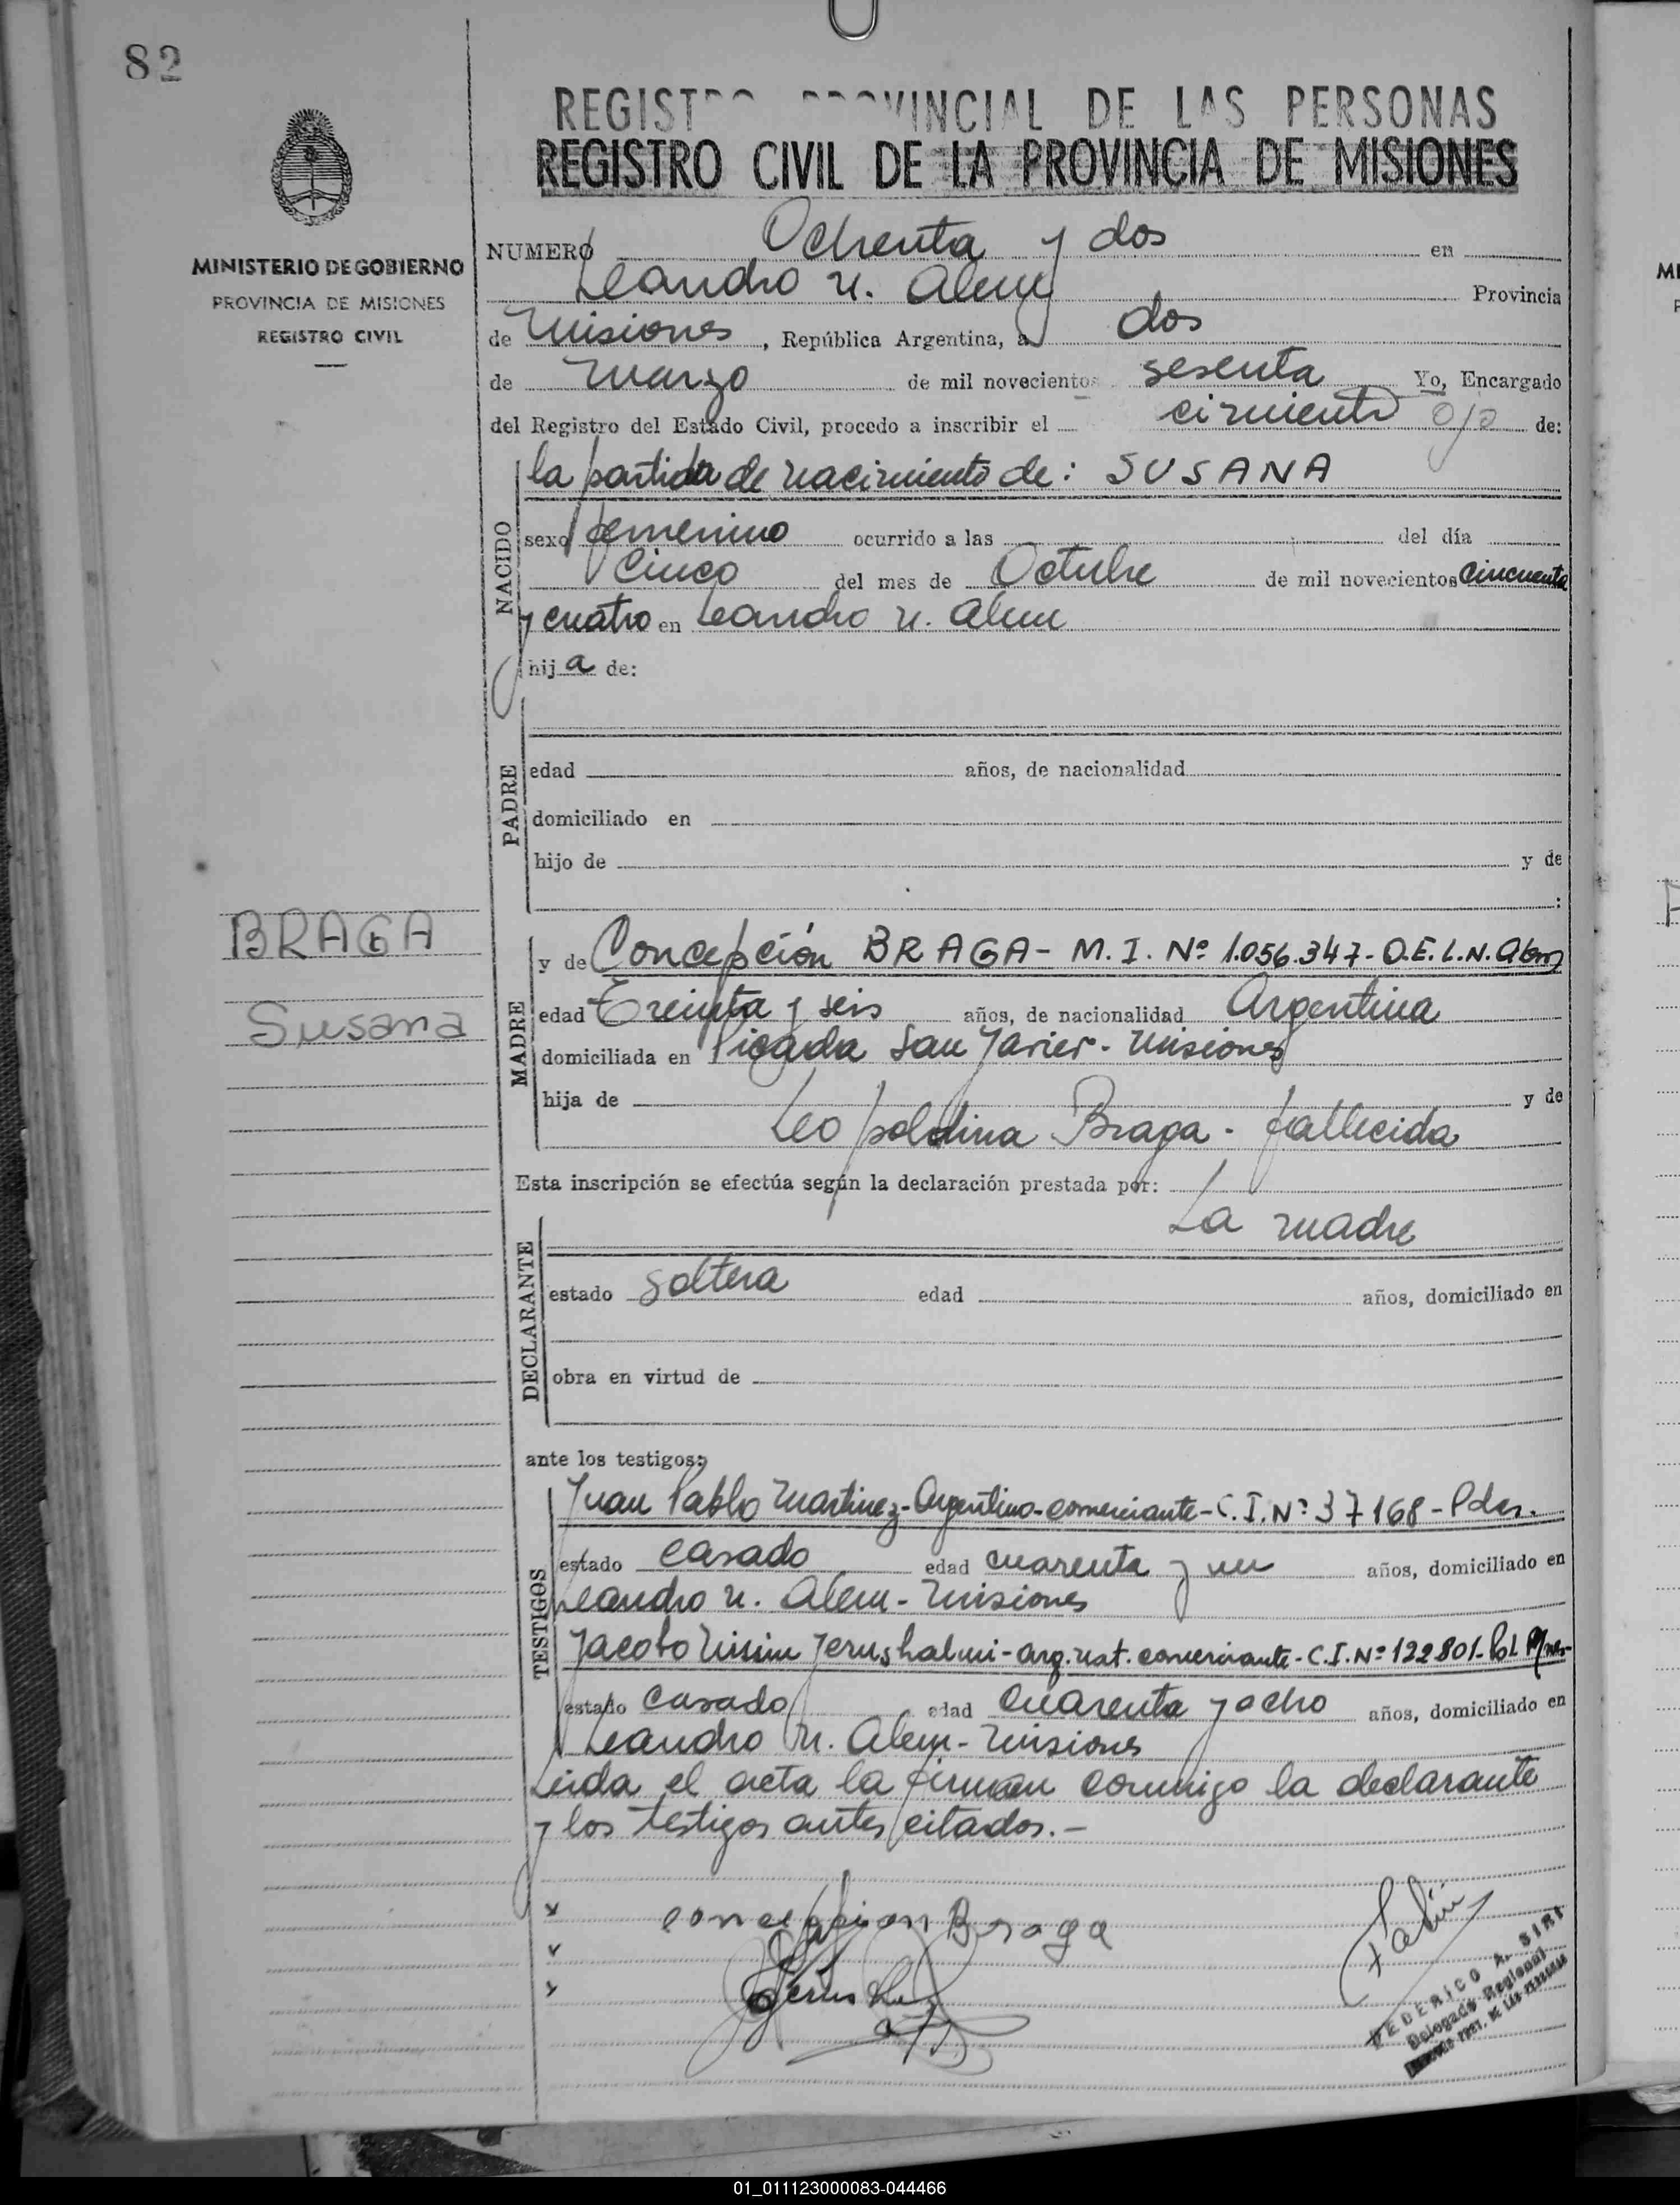 82
REGISTRO PROVINCIAL DE LAS PERSONAS
REGISTRO CIVIL DE LA PROVINCIA DE MISIONES
MINISTERIO DE GOBIERNO
PROVINCIA DE MISIONES
REGISTRO CIVIL
NUMERO Ochenta y dos en
Leandro N. Alem Provincia
de Misiones, República Argentina, a dos
de Marzo de mil novecientos sesenta Yo, Encargado
del Registro del Estado Civil, procedo a inscribir el de:
NACIDO
la partida de nacimiento de: SUSANA
sexo femenino ocurrido a las del día
Cinco del mes de Octubre de mil novecientos cincuenta
y cuatro en Leandro N. Alem
hija de:
PADRE
edad años, de nacionalidad
domiciliado en
hijo de y de
:
BRAGA
Susana
MADRE
y de Concepción BRAGA - M. I. Nº 1.056.347 - O.E.L.N. Alem
edad Treinta y seis años, de nacionalidad Argentina
domiciliada en Picada San Javier - Misiones
hija de y de
Leopoldina Braga - fallecida
Esta inscripción se efectúa según la declaración prestada por:
La madre
DECLARANTE
estado soltera edad años, domiciliado en
obra en virtud de
ante los testigos:
TESTIGOS
Juan Pablo Martinez - Argentino - comerciante - C. I. Nº 37168 - Pdas.
estado casado edad cuarenta y un años, domiciliado en
Leandro N. Alem - Misiones
Jacobo Nissim Jerushalmi - arg. nat. comerciante - C. I. Nº 122801 - Pol. Mnes
estado casado edad cuarenta y ocho años, domiciliado en
Leandro N. Alem - Misiones
Leida el acta la firman conmigo la declarante
y los testigos antes citados. -
concepcion Braga
FEDERICO A. SIRI
Delegado Regional
01_011123000083-044466